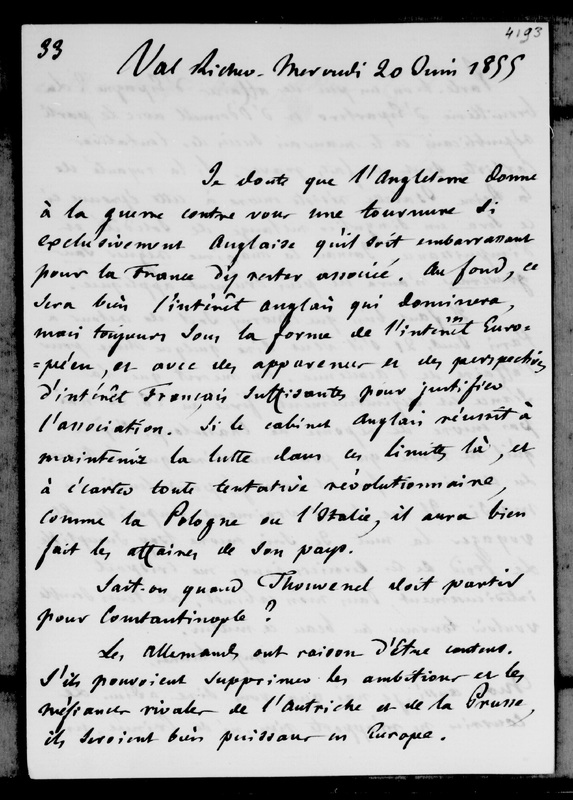 33
4193
Val Richer - Mercredi 20 Juin 1855
Je doute que l'Angleterre donne
à la guerre contre vous une tournure si
exclusivement Anglaise qu'il soit embarrassant
pour la France d'y rester associée. Au fond, ce
sera bien l'intérêt anglais qui dominera,
mais toujours sous la forme de l'intérêt Euro-
=péen, et avec des apparences et des perspectives
d'intérêt Français suffisantes pour justifier
l'association. Si le cabinet Anglais réussit à
maintenir la lutte dans ces limites là, et
à écarter toute tentative révolutionnaire,
comme la Pologne ou l'Italie, il aura bien
fait les affaires de son pays.
Sait-on quand Thouvenel doit partir
pour Constantinople ?
Les Allemands ont raison d'être contens.
S'ils pouvoient supprimer les ambitions et les
méfiances rivales de l'Autriche et de la Prusse,
ils seroient bien puissans en Europe.